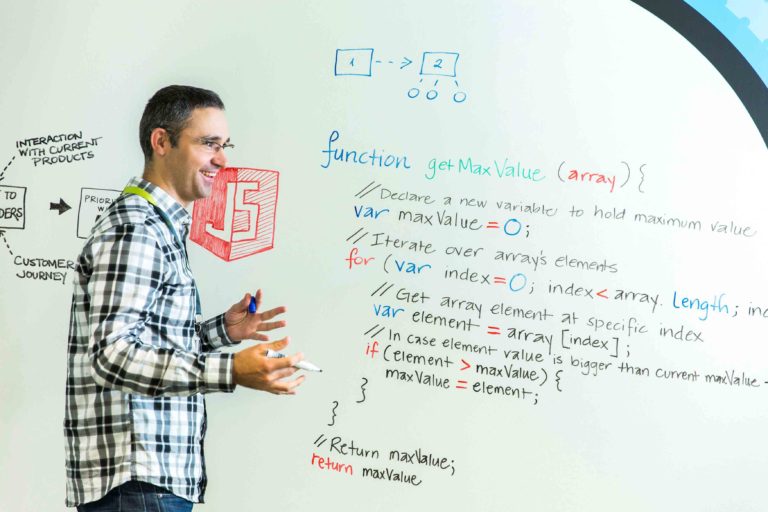 1 2
INTERACTION
WITH CURRENT
PRODUCTS
TO
PRIORI
JS
CUSTOMER
JOURNEY
function getMaxValue (array) {
//Declare a new variable to hold maximum value
var maxValue = 0;
//Iterate over array's elements
for (var index=0; index< array. Length;
//Get array element at specific index
var element = array [index];
//In case element value is bigger than current maxValue -
if (element > maxValue) {
maxValue = element;
}
}
//Return maxValue;
return maxValue